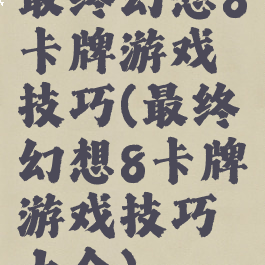 最终幻想8
卡牌游戏
技巧(最终
幻想8卡牌
游戏技巧
大全)